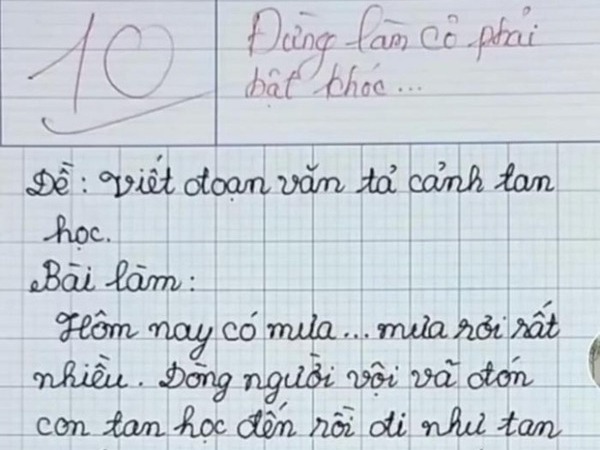 10
Đừng làm cô phải
bật khóc...
Đề: Viết đoạn văn tả cảnh tan
học.
Bài làm:
Hôm nay có mưa... mưa rơi rất
nhiều. Dòng người vội vã đón
con tan học đến rồi đi như tan